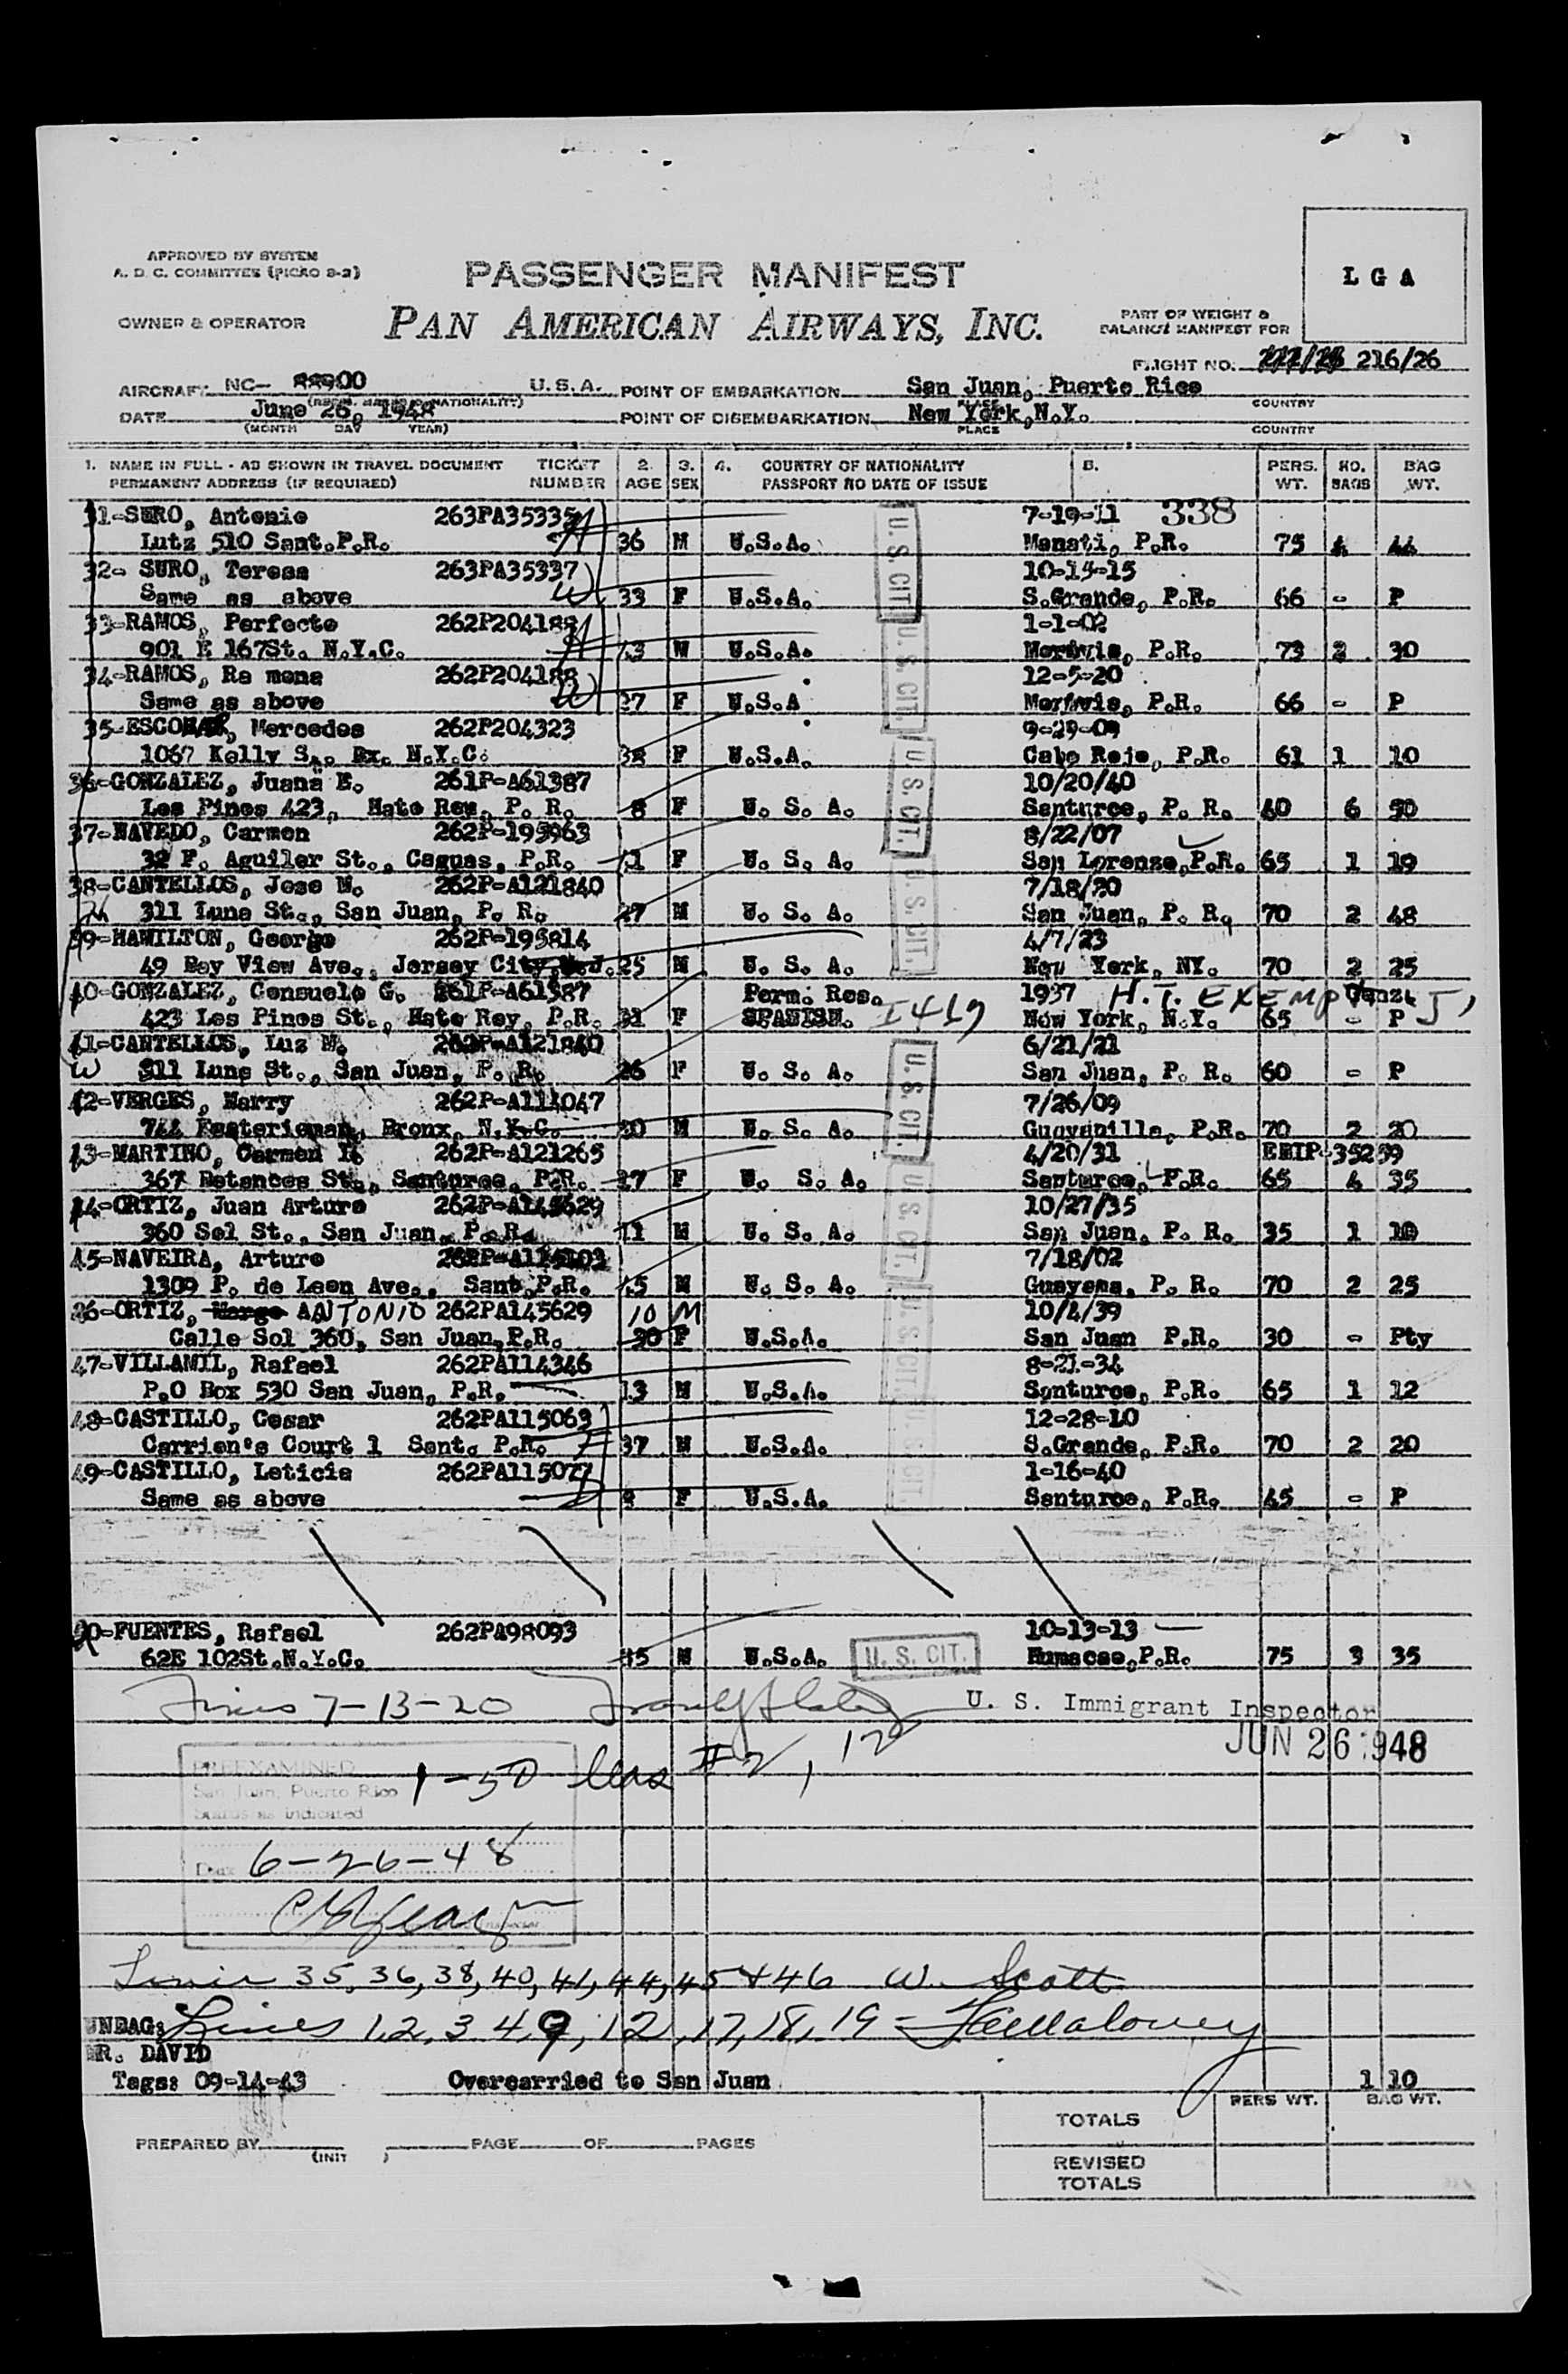 APPROVED BY SYSTEM
A. D. C. COMMITTEE (PICAO 8-2)
PASSENGER MANIFEST
L G A
OWNER & OPERATOR
PAN AMERICAN AIRWAYS, INC.
PART OF WEIGHT &
BALANCE MANIFEST FOR
FLIGHT NO. 216/26
AIRCRAFT NC- 88900 U.S.A. POINT OF EMBARKATION San Juan, Puerto Rico
DATE June 26, 1948 POINT OF DISEMBARKATION New York,N.Y.
(MONTH DAY YEAR) PLACE COUNTRY
1. NAME IN FULL - AS SHOWN IN TRAVEL DOCUMENT TICKET 2. 3. 4. COUNTRY OF NATIONALITY 5. PERS. NO. BAG
PERMANENT ADDRESS (IF REQUIRED) NUMBER AGE SEX PASSPORT NO DATE OF ISSUE WT. BAGS WT.
31-SURO, Antonio 263PA35335 7-19-11 338
Lutz 510 Sant.P.R. 36 M U.S.A. Manati, P.R. 75 4 44
32- SURO, Teresa 263PA35337 10-15-15
Same as above 33 F U.S.A. S.Grande, P.R. 66 - P
33-RAMOS, Perfecto 262P204188 1-1-02
901 E 167St. N.Y.C. M U.S.A. P.R. 73 2 30
34-RAMOS, Ra mona 262P204188 12-5-20
Same as above 27 F U.S.A P.R. 66 - P
35-ESCOBAR, Mercedes 262P204323 9-29-09
1067 Kelly S.. Bx. N.Y.C. 38 F U.S.A. Cabo Rojo, P.R. 61 1 10
36-GONZALEZ, Juana E. 261P-A61387 10/20/40
Los Pinos 423, Hato Rey, P. R. 8 F U. S. A. Santurce, P. R. 40 6 90
37-NAVEDO, Carmen 262P-195963 8/22/07
32 F. Aguiler St., Caguas, P.R. 41 F U. S. A. San Lorenzo,P.R. 65 1 19
38-CANTELLOS, Jose M. 262P-A121840 7/18/20
311 Luna St., San Juan, P. R. 27 M U. S. A. San Juan, P. R. 70 2 48
39-HAMILTON, George 262P-195814 4/7/23
49 Bay View Ave., Jersey City,N.J. 25 M U. S. A. New York, NY. 70 2 25
40-GONZALEZ, Consuelo G. 261P-A61387 Perm. Res. 1937 H.T. EXEMPT
423 Los Pinos St., Hato Rey, P.R. 31 F SPANISH. I 419 New York, N.Y. 65 - P
41-CANTELLOS, Luz M. 262P-A121840 6/21/21
W 311 Luna St., San Juan, P. R. 26 F U. S. A. San Juan, P. R. 60 - P
42-VERGES, Harry 262P-A114047 7/26/09
Bronx, N.Y.C. M U. S. A. Guayanilla, P.R. 70 2 20
43-MARTINO, Carmen 262P-A121265 4/20/31 35259
367 Betances St., Santurce, P.R. F U. S. A. Santurce, P.R. 65 4 35
44-ORTIZ, Juan Arturo 262P-A145629 10/27/35
360 Sol St., San Juan, P.R. 11 M U. S. A. San Juan, P. R. 35 1 10
45-NAVEIRA, Arturo 7/18/02
1309 P. de Leon Ave., Sant.P.R. 45 M U. S. A. Guayama, P. R. 70 2 25
46-ORTIZ, Margo ANTONIO 262PA145629 10 M 10/4/39
Calle Sol 360, San Juan,P.R. 30 F U.S.A. San Juan P.R. 30 - Pty
47-VILLAMIL, Rafael 262PA114346 8-21-34
P.O Box 530 San Juan, P.R. 13 M U.S.A. Santurce, P.R. 65 1 12
48-CASTILLO, Cesar 262PA115063 12-28-10
Carrion's Court 1 Sant. P.R. 37 M U.S.A. S.Grande, P.R. 70 2 20
49-CASTILLO, Leticia 262PA115077 1-16-40
Same as above F U.S.A. Santurce, P.R. 45 - P
U. S. CIT.
U. S. CIT.
U. S. CIT.
U. S. CIT.
U. S. CIT.
U. S. CIT.
U. S. CIT.
50-FUENTES, Rafael 262PA98093 10-13-13
62E 102St.N.Y.C. M U.S.A. U. S. CIT. Humacao,P.R. 75 3 35
Lines 7-13-20 U. S. Immigrant Inspector
JUN 26 1948
PREEXAMINED
San Juan, Puerto Rico
Status as indicated
1-50 less #2, 12
Date 6-26-48
Lines 35, 36, 38, 40, 41, 44, 45 + 46 W. Scott
UNBAG: Lines 1, 2, 3 4, 9, 12, 17, 18, 19 -
MR. DAVID
Tags: 09-14-43 Overcarried to San Juan 1 10
TOTALS PERS WT. BAG WT.
PREPARED BY (INIT ) PAGE OF PAGES
REVISED
TOTALS